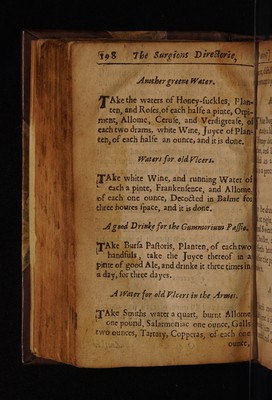 198 The Surgions Directorie,
Another greene Water.
TAke the waters of Honey-suckles, Plan-
ten, and Roses, of each halfe a pinte, Orpi-
ment, Allome, Ceruse, and Verdigrease, of
each two drams, white Wine, Juyce of Plan-
ten, of each halfe an ounce, and it is done.
Waters for old Vlcers.
TAke white Wine, and running Water of
each a pinte, Frankensence, and Allome
of each one ounce, Decocted in Balme for
three houres space, and it is done.
A good Drinke for the Gummorium Passio.
TAke Bursa Pastoris, Planten, of each two
handfuls, take the Juyce thereof in a
pinte of good Ale, and drinke it three times in
a day, for three dayes.
A Water for old Vlcers in the Armes.
TAke Smiths water a quart, burnt Allome
one pound, Salarmoniac one ounce, Galls
two ounces, Tartary, Copperas, of each one
ounce,